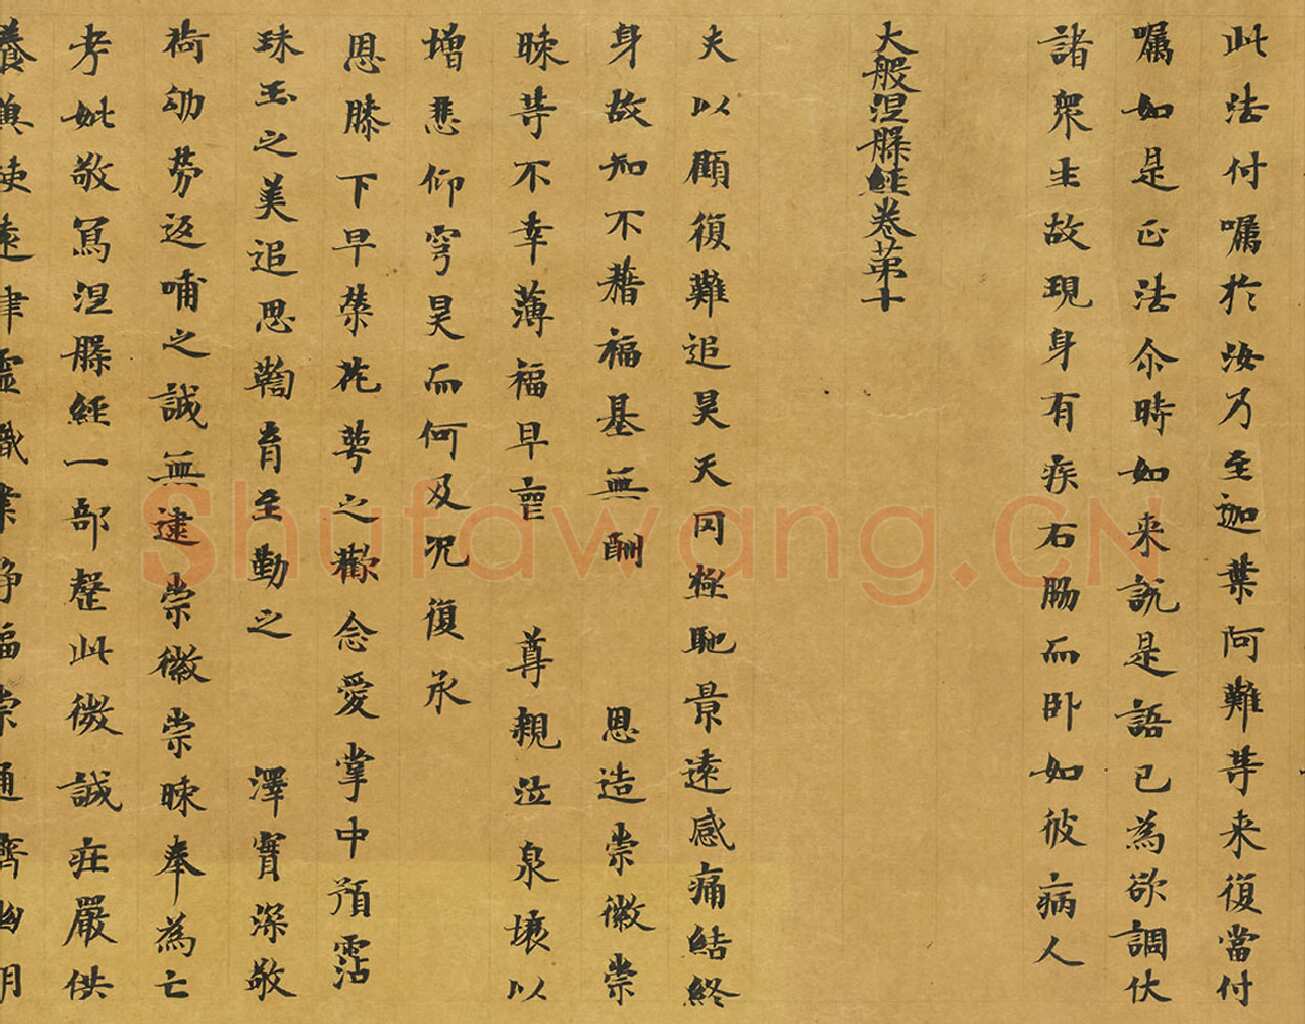 此法付囑於汝乃至迦葉阿難等来復當付
囑如是正法尒時如来說是語已為欲調伏
諸衆生故現身有疾右脇而卧如彼病人
大般涅槃經卷第十
夫以顧復難追昊天罔極馳景遠感痛結終
身故知不藉福基無酬 恩造崇徽崇
暕等不幸薄福早 尊親泣泉壤以
增悲仰穹昊而何及况復承
恩膝下早榮花萼之歡念愛掌中預霑
珠玉之美追思鞠育至勤之 澤實深敬
荷劬勞返哺之誠無逮崇徽崇暕奉為亡
考妣敬寫涅槃經一部罄此微誠莊嚴供
養兼使遠津靈識業淨福崇通齊幽明
Shufawang.CN